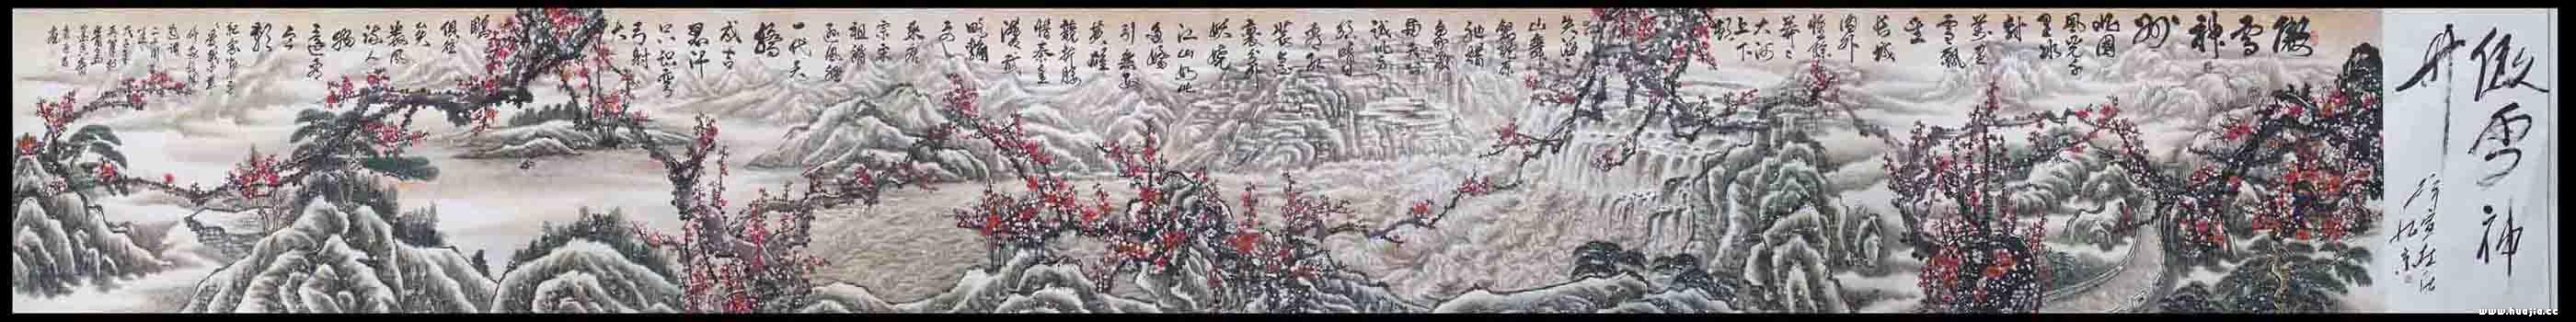 傲雪神
州
傲雪神州
北国
风光千
里冰
封
万里
雪飘
望
长城
内外
惟馀
莽々
大河
上下
顿
失滔々
山舞
银蛇原
驰蜡
象欲
与天公
试比高
须晴日
看红
装素
裹分外
妖娆
江山如此
多娇
引无数
英雄
竞折腰
惜秦皇
汉武
略输
文
采唐
宗宋
祖稍
逊风骚
一代天
骄
成吉
思汗
只识弯
弓射
大
雕
俱往
矣
数风
流人
物
还看
今
朝
www.huajia.cc